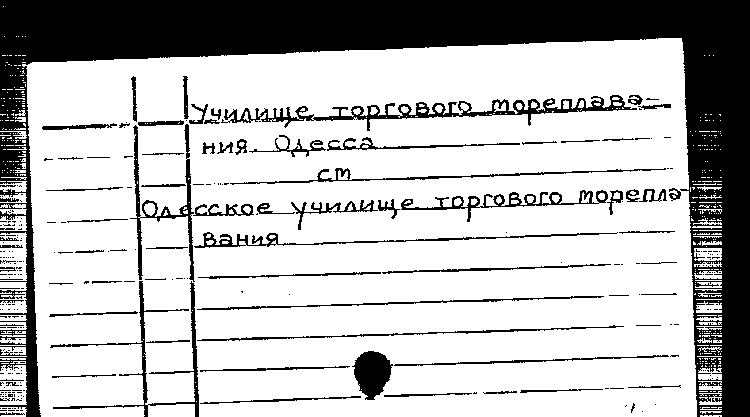 Училище торгового мореплава-
ния. Одесса
см
Одесское училище торгового морепла-
вания